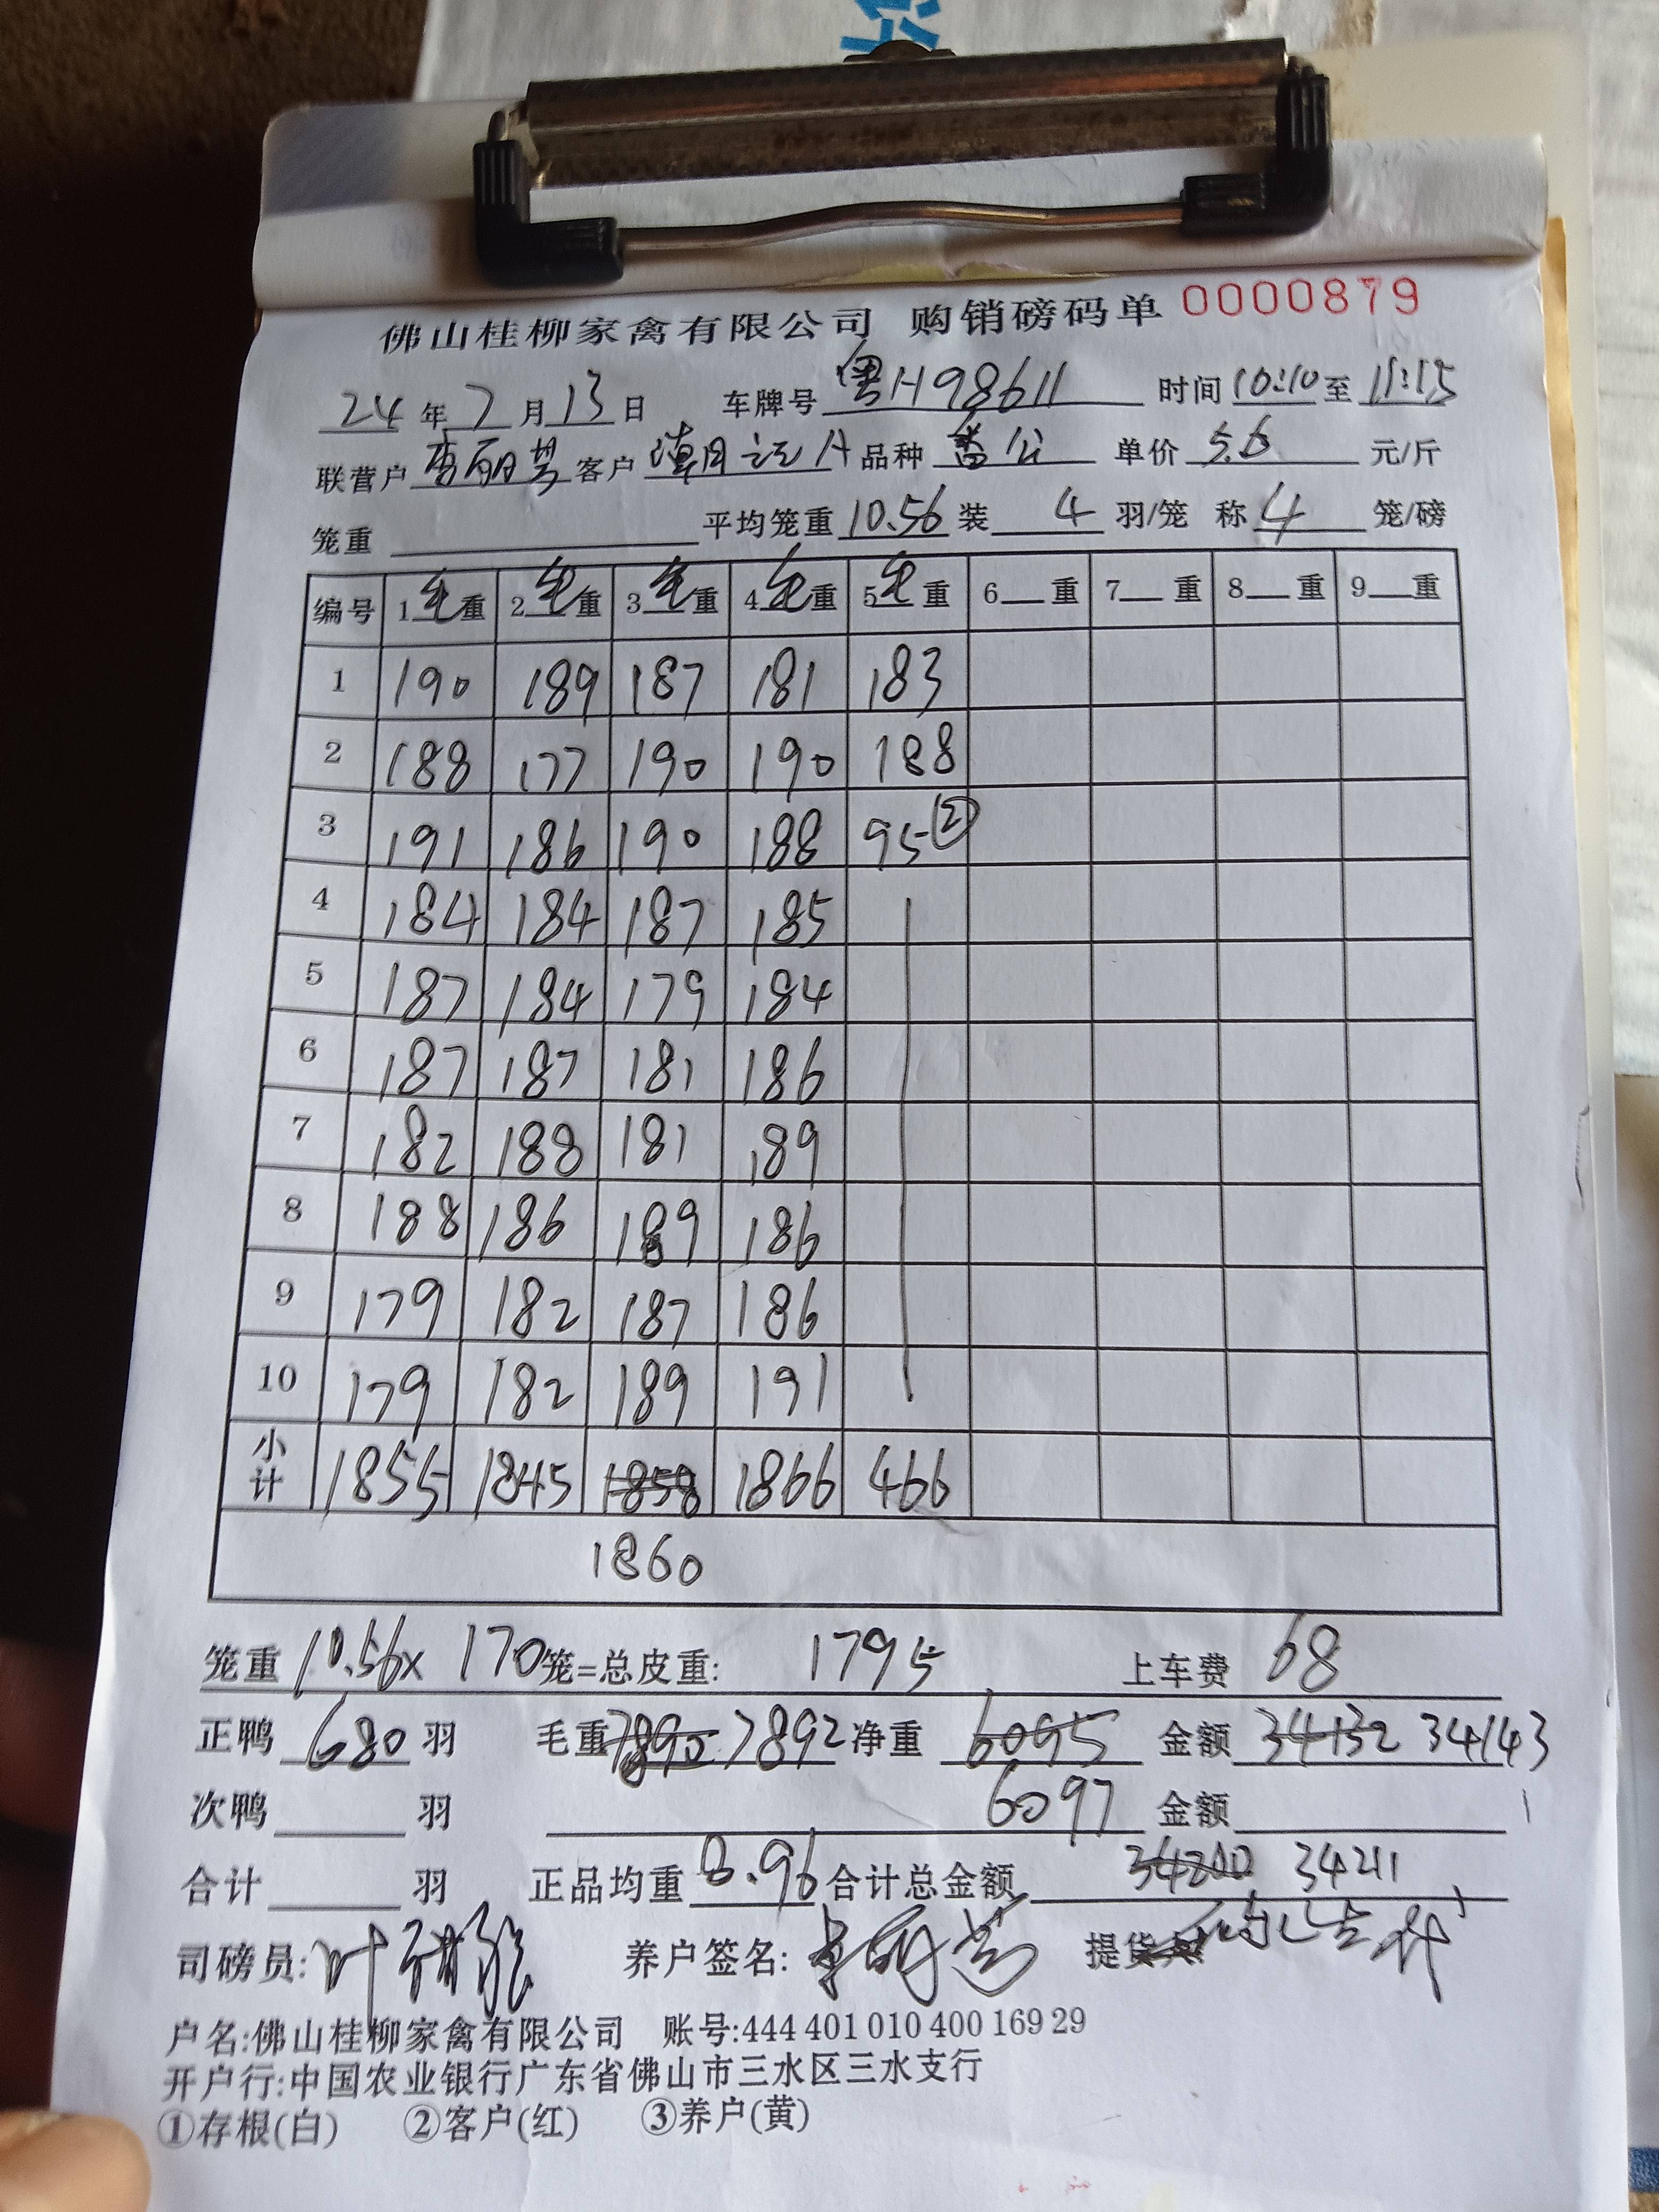 佛山桂柳家禽有限公司 购销磅码单 0000879
24 年 7 月 13 日 车牌号 粤H98611 时间 10:10 至 11:15
联营户 李丽芳 客户 记A 品种 番公 单价 5.6 元/斤
笼重 平均笼重 10.56 装 4 羽/笼 称 4 笼/磅
编号 1毛重 2毛重 3毛重 4毛重 5毛重 6 重 7 重 8 重 9 重
1 190 189 187 181 183
2 188 177 190 190 188
3 191 186 190 188 95②
4 184 184 187 185
5 187 184 179 184
6 187 187 181 186
7 182 188 181 189
8 188 186 189 186
9 179 182 187 186
10 179 182 189 191
小计 1855 1845 1858 1866 466
1860
笼重 10.56× 170 笼=总皮重: 1795 上车费 68
正鸭 680 羽 毛重 7890 7892 净重 6095 金额 34132 34143
次鸭 羽 6097 金额
合计 羽 正品均重 8.96 合计总金额 34200 34211
司磅员: 叶 养户签名: 李丽芳 提货 代
户名:佛山桂柳家禽有限公司 账号:444 401 010 400 169 29
开户行:中国农业银行广东省佛山市三水区三水支行
①存根(白) ②客户(红) ③养户(黄)